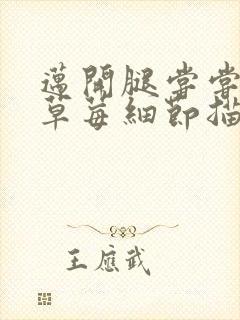 邁開腿嘗嘗
草莓細節描
王應武